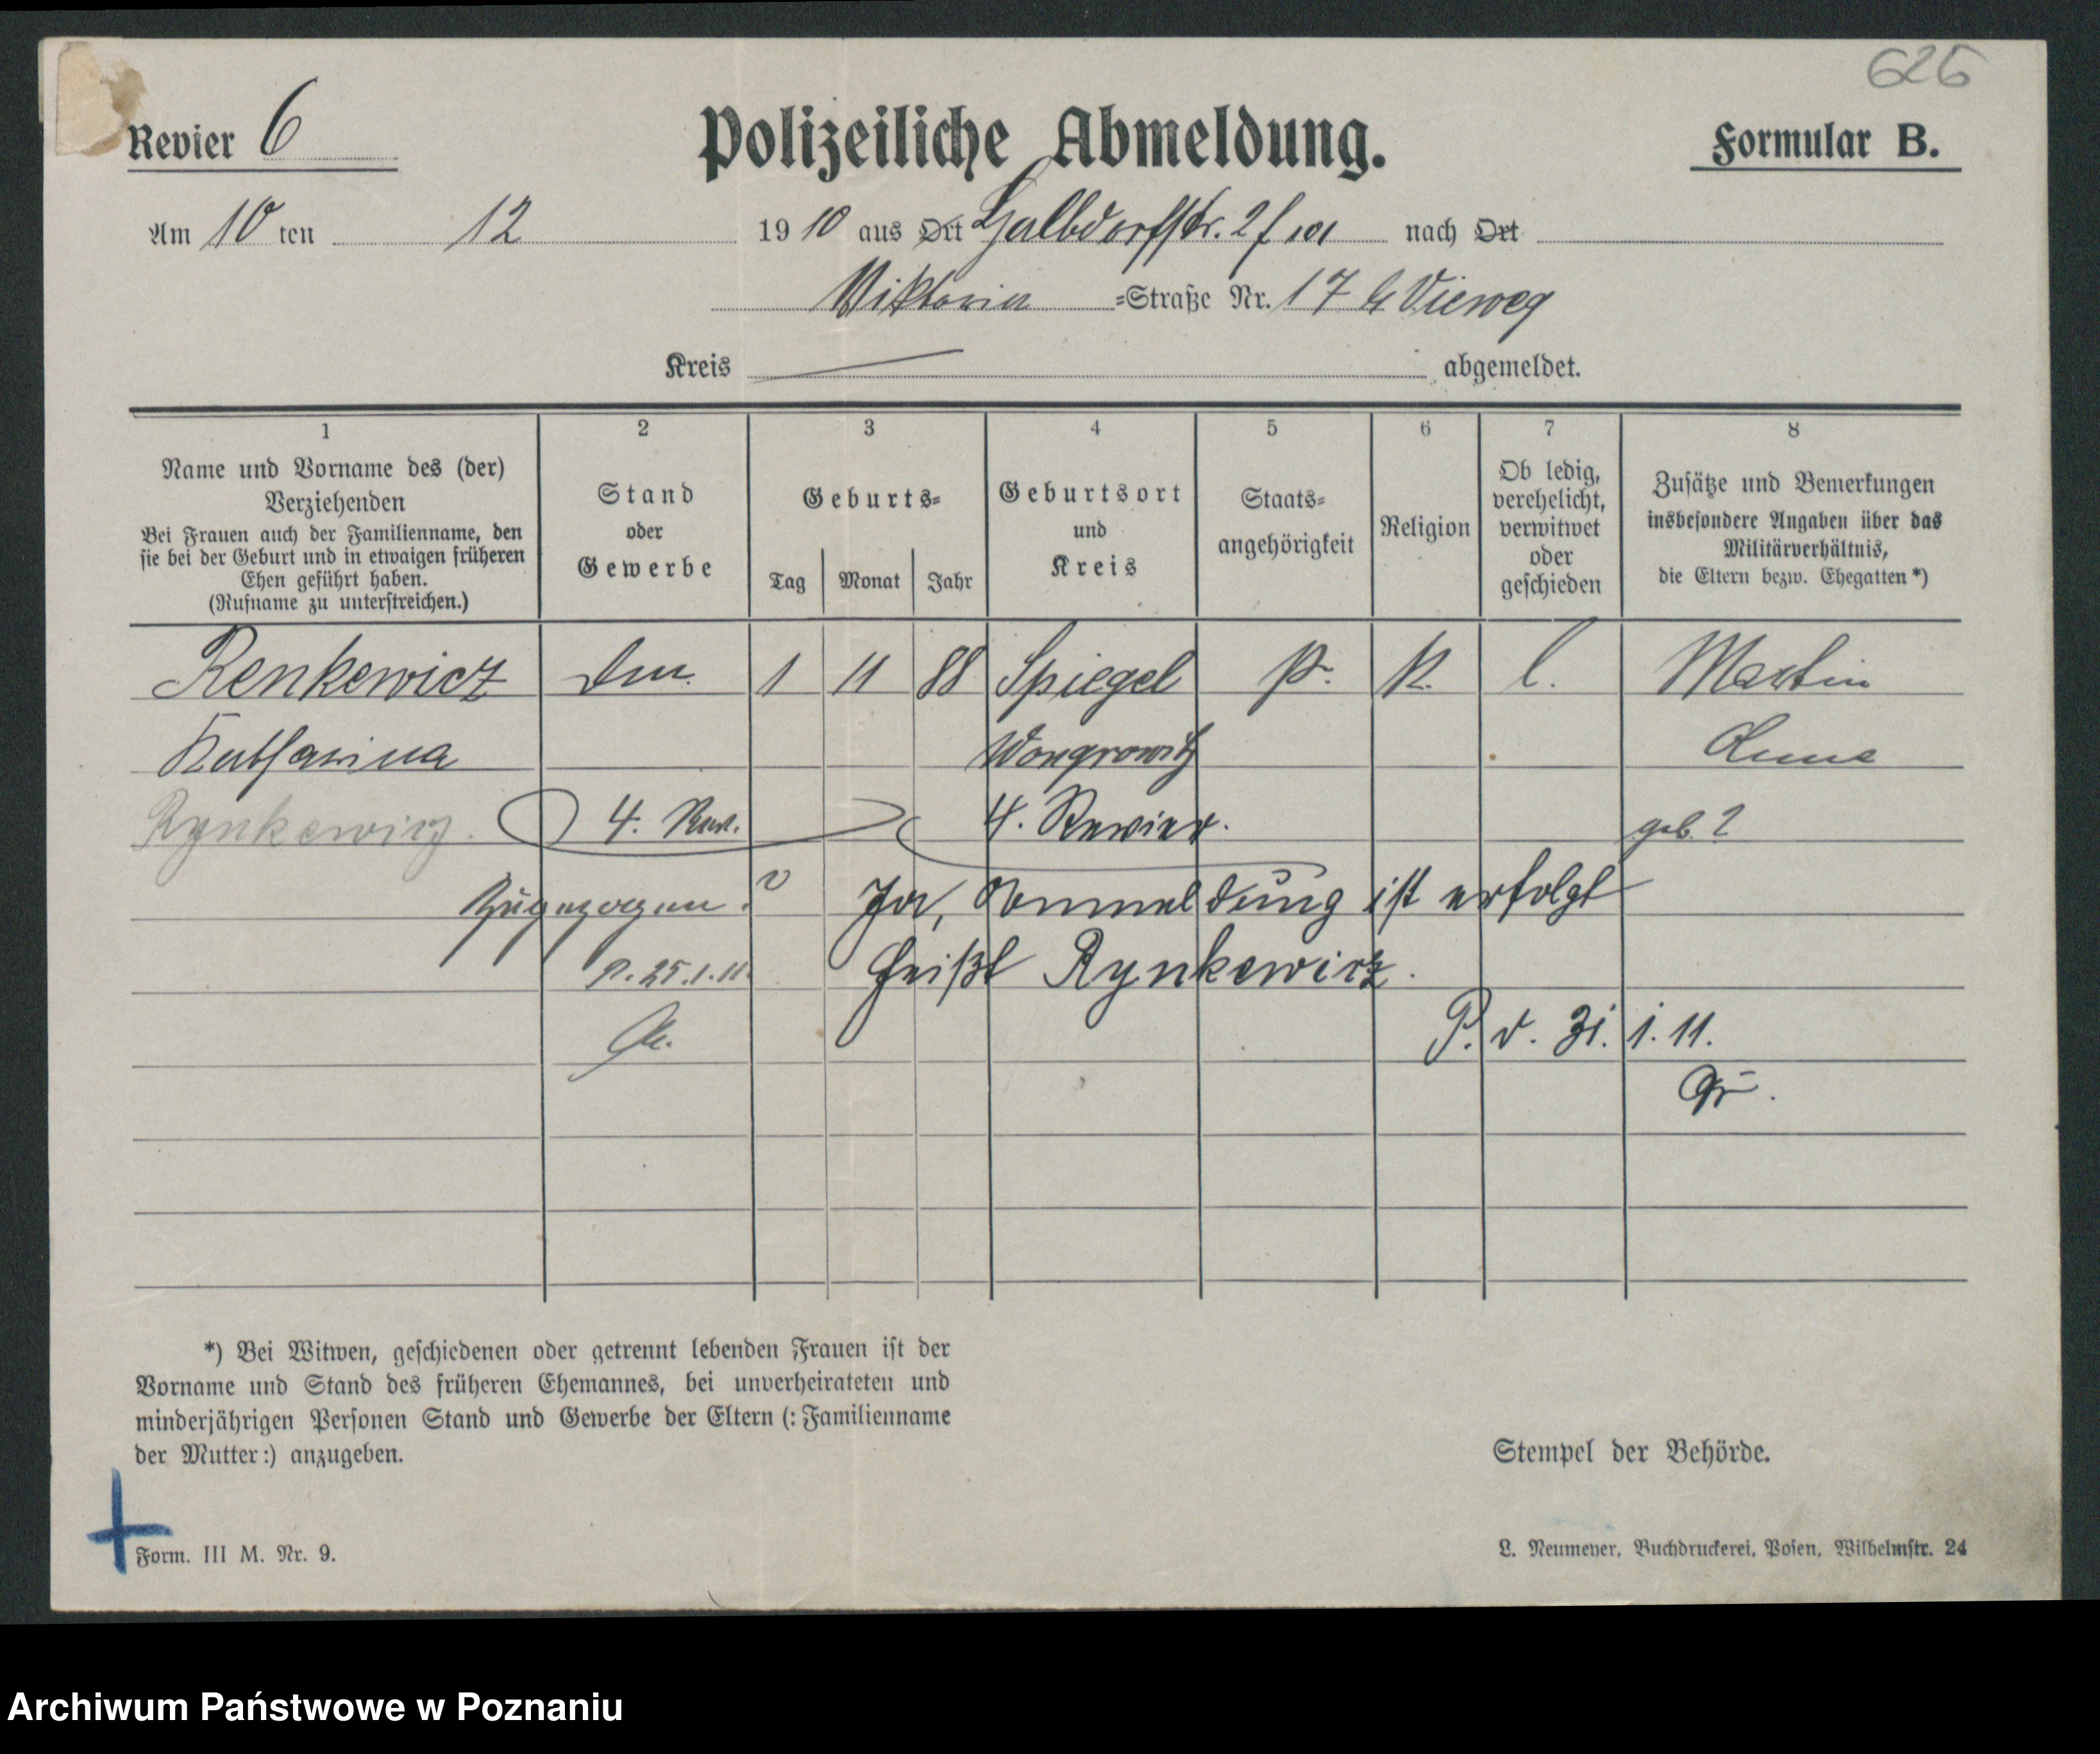 626
Revier 6
Polizeiliche Abmeldung.
Formular B.
Am 10 ten 12 1910 aus Ort Halbdorfstr. 2 nach Ort
Viktoria =Straße Nr. 17 b Vieweg
Kreis — abgemeldet.
1 2 3 4 5 6 7 8
Name und Vorname des (der)
Verziehenden
Bei Frauen auch der Familienname, den
sie bei der Geburt und in etwaigen früheren
Ehen geführt haben.
(Rufname zu unterstreichen.)
Stand
oder
Gewerbe
Geburts=
Tag Monat Jahr
Geburtsort
und
Kreis
Staats=
angehörigkeit
Religion
Ob ledig,
verehelicht,
verwitwet
oder
geschieden
Zusätze und Bemerkungen
insbesondere Angaben über das
Militärverhältnis,
die Eltern bezw. Ehegatten*)
Renkewicz Dm. 1 11 88 Spiegel p. k. l. Martin
Katharina Wongrowitz Anna
Rynkewicz. 4. Rev. 4. Revier. geb. ?
Zugezogen? Ja, Anmeldung ist erfolgt
P. 25.1.11. heißt Rynkewicz.
P. d. 31. 1. 11.
*) Bei Witwen, geschiedenen oder getrennt lebenden Frauen ist der
Vorname und Stand des früheren Ehemannes, bei unverheirateten und
minderjährigen Personen Stand und Gewerbe der Eltern (: Familienname
der Mutter :) anzugeben.
Stempel der Behörde.
Form. III M. Nr. 9.
L. Neumeyer, Buchdruckerei, Posen, Wilhelmstr. 24
Archiwum Państwowe w Poznaniu